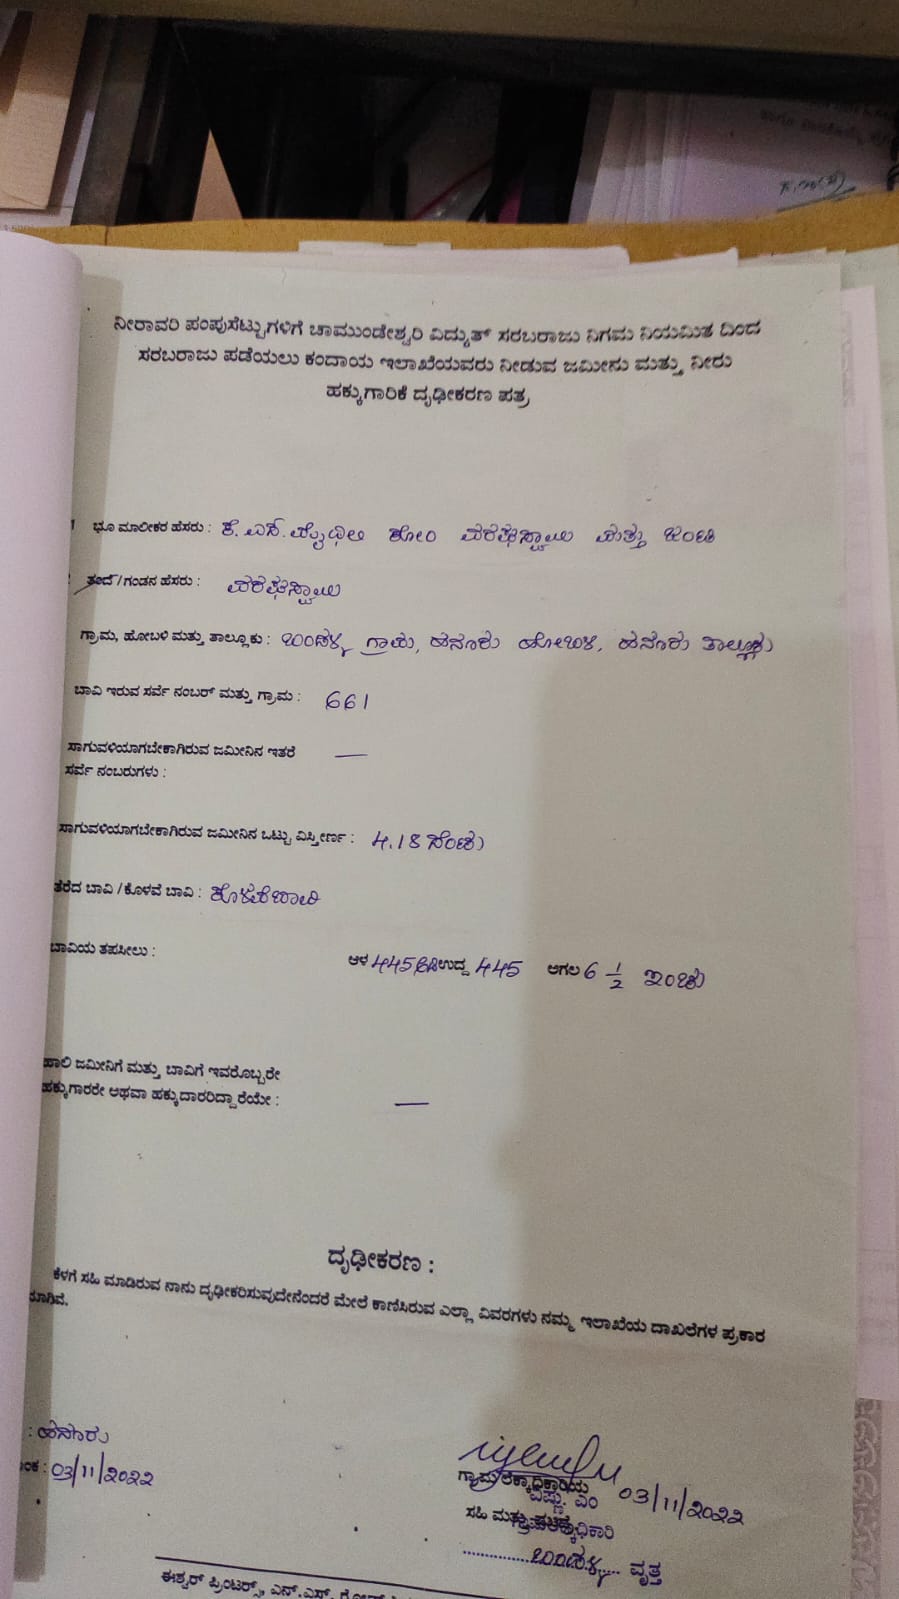 ನೀರಾವರಿ ಪಂಪುಸೆಟ್ಟುಗಳಿಗೆ ಚಾಮುಂಡೇಶ್ವರಿ ವಿದ್ಯುತ್ ಸರಬರಾಜು ನಿಗಮ ನಿಯಮಿತ ದಿಂದ
ಸರಬರಾಜು ಪಡೆಯಲು ಕಂದಾಯ ಇಲಾಖೆಯವರು ನೀಡುವ ಜಮೀನು ಮತ್ತು ನೀರು
ಹಕ್ಕುಗಾರಿಕೆ ದೃಢೀಕರಣ ಪತ್ರ
ಭೂ ಮಾಲೀಕರ ಹೆಸರು : ಕೆ.ಎಸ್. ಕೋಂ ಮತ್ತು ಜಂಟಿ
ತಂದೆ/ಗಂಡನ ಹೆಸರು :
ಗ್ರಾಮ, ಹೋಬಳಿ ಮತ್ತು ತಾಲ್ಲೂಕು : ಬಂಡಳ್ಳಿ ಗ್ರಾಮ, ಹನೂರು ಹೋಬಳಿ, ಹನೂರು ತಾಲ್ಲೂಕು
ಬಾವಿ ಇರುವ ಸರ್ವೆ ನಂಬರ್ ಮತ್ತು ಗ್ರಾಮ : 661
ಸಾಗುವಳಿಯಾಗಬೇಕಾಗಿರುವ ಜಮೀನಿನ ಇತರೆ —
ಸರ್ವೆ ನಂಬರುಗಳು :
ಸಾಗುವಳಿಯಾಗಬೇಕಾಗಿರುವ ಜಮೀನಿನ ಒಟ್ಟು ವಿಸ್ತೀರ್ಣ : 4.18 ಸೆಂಟು
ತೆರೆದ ಬಾವಿ / ಕೊಳವೆ ಬಾವಿ : ಕೊಳವೆಬಾವಿ
ಬಾವಿಯ ತಪಸೀಲು : ಆಳ 445 ಉದ್ದ 445 ಅಗಲ 6 1/2 ಇಂಚು
ಹಾಲಿ ಜಮೀನಿಗೆ ಮತ್ತು ಬಾವಿಗೆ ಇವರೊಬ್ಬರೇ
ಹಕ್ಕುಗಾರರೇ ಅಥವಾ ಹಕ್ಕುದಾರರಿದ್ದಾರೆಯೇ : —
ದೃಢೀಕರಣ :
ಕೆಳಗೆ ಸಹಿ ಮಾಡಿರುವ ನಾನು ದೃಢೀಕರಿಸುವುದೇನೆಂದರೆ ಮೇಲೆ ಕಾಣಿಸಿರುವ ಎಲ್ಲಾ ವಿವರಗಳು ನಮ್ಮ ಇಲಾಖೆಯ ದಾಖಲೆಗಳ ಪ್ರಕಾರ
: ಹನೂರು
: 03/11/2022
ಗ್ರಾಮ ಲೆಕ್ಕಾಧಿಕಾರಿಯ
ವಿಷ್ಣು. ಎಂ 03/11/2022
ಸಹಿ ಮತ್ತು
ಬಂಡಳ್ಳಿ ವೃತ್ತ
ಈಶ್ವರ್ ಪ್ರಿಂಟರ್ಸ್, ಎನ್.ಎಸ್.